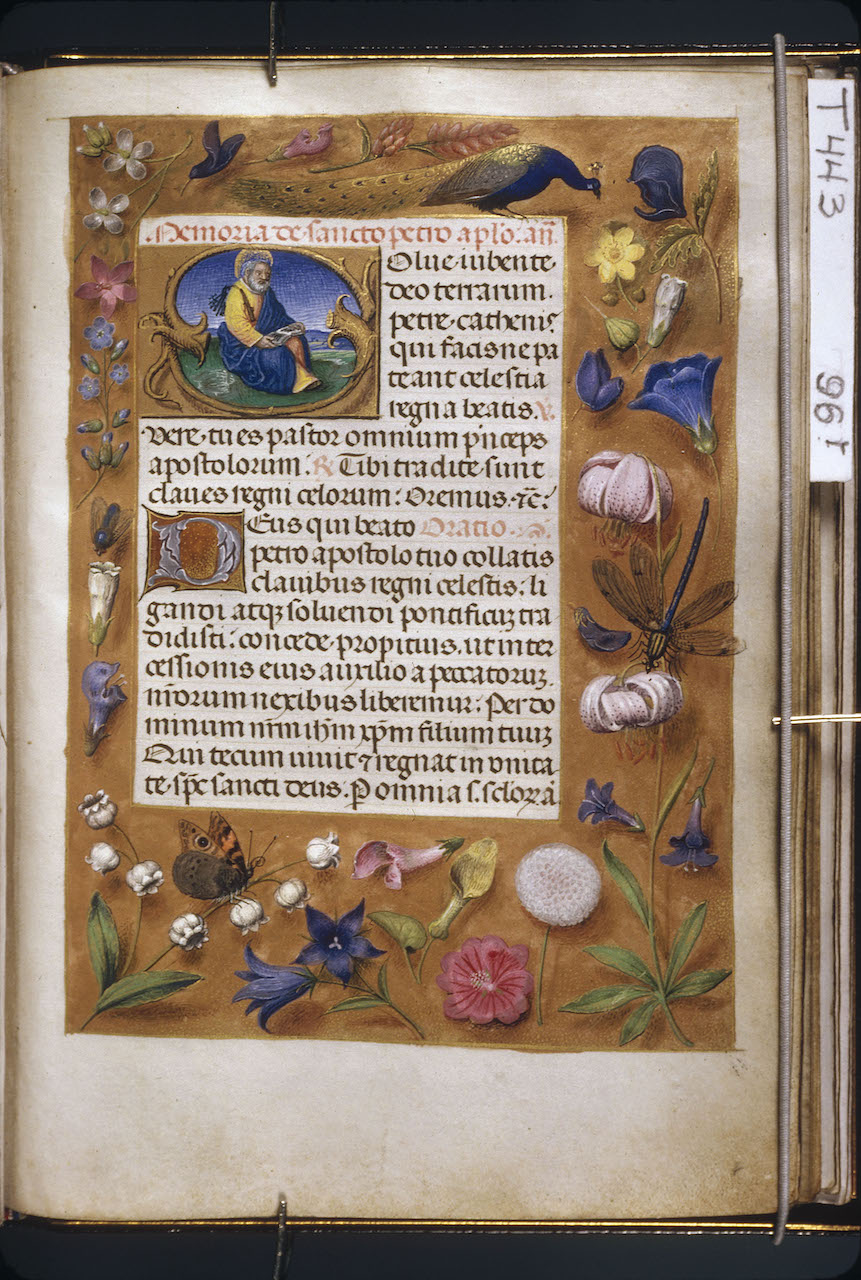 Memoria de sancto petro aplo. añ.
Solue iubente
deo terrarum.
petre cathenis
qui facis ne pa
teant celestia
regna beatis. V.
vere tu es pastor omnium pnceps
apostolorum. R. Tibi tradite sunt
claues regni celorum: Oremus. ⁊c̃.
Deus qui beato Oratio.
petro apostolo tuo collatis
clauibus regni celestis: li
gandi atqꝫ soluendi pontificiuꝫ tra
didisti: concede propitius. ut inter
cessionis eius auxilio a peccatoruꝫ
nr̃orum nexibus liberemur: Per do
minum nr̃m ihm̃ xpm̃ filium tuuꝫ
Qui tecum uiuit ⁊ regnat in vnita
te. spc̃ sancti deus. P omnia s. sclorꝫ ã.
T443
96r